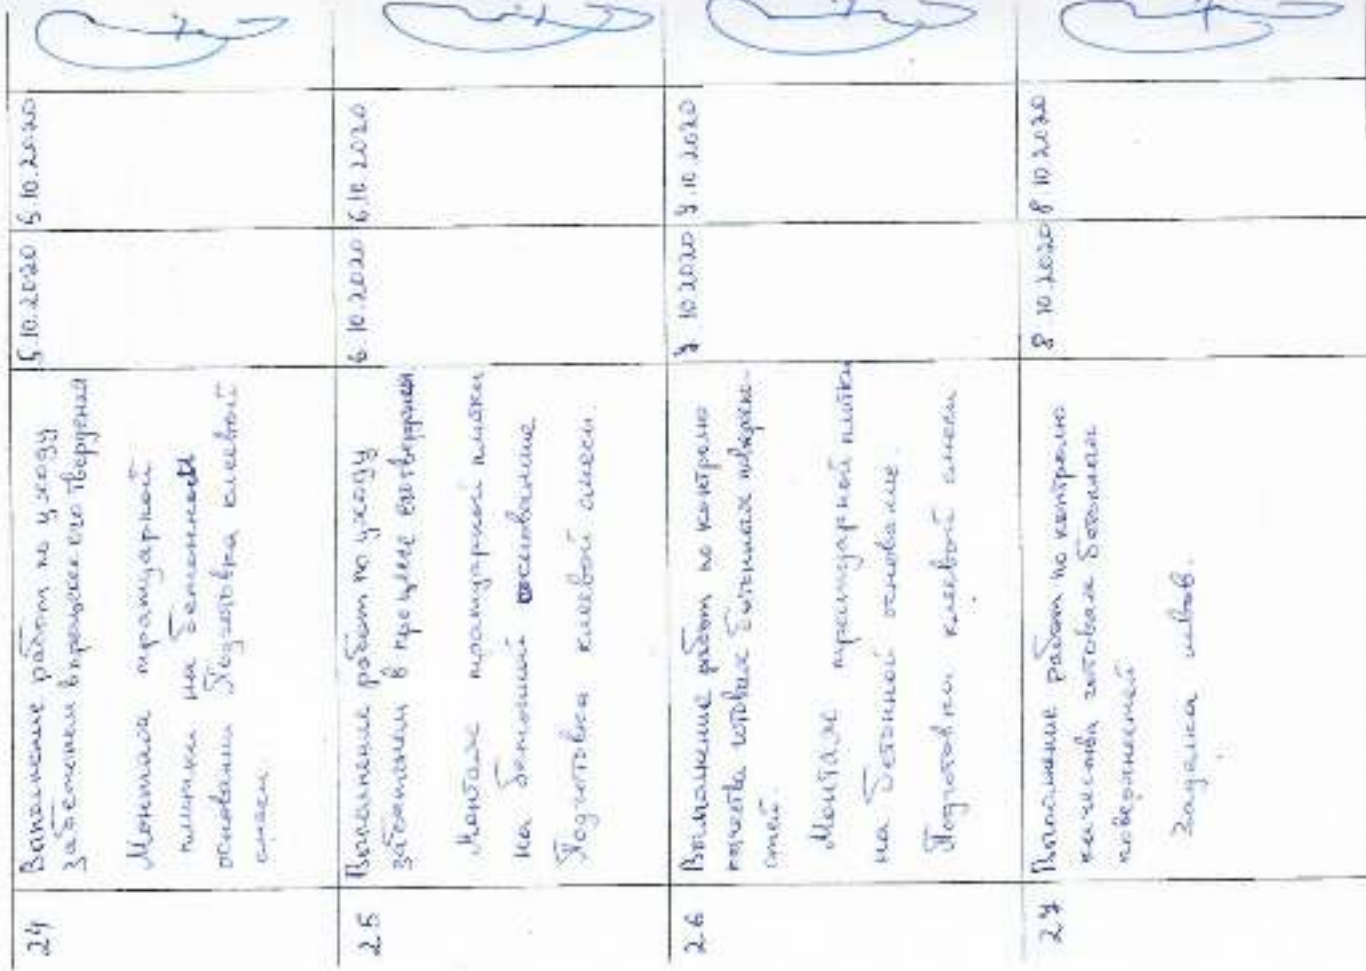 24
Выполнение работ по уходу
за бетоном в процессе его твердения
Монтаж тротуарной
плитки на бетонном
основании Подготовка клеевой
смеси.
5.10.2020
5.10.2020
25
Выполнение работ по уходу
за бетоном в процессе его твердения
Монтаж тротуарной плитки
на бетонный основание
Подготовка клеевой смеси.
6.10.2020
6.10.2020
26
Выполнение работ по контролю
качества готовых бетонных поверхно-
стей.
Монтаж тротуарной плитки
на бетонной основание.
Подготовка клеевой смеси
7.10.2020
7.10.2020
27
Выполнение работ по контролю
качества готовых бетонных
поверхностей
Заделка швов.
8 10 2020
8 10 2020